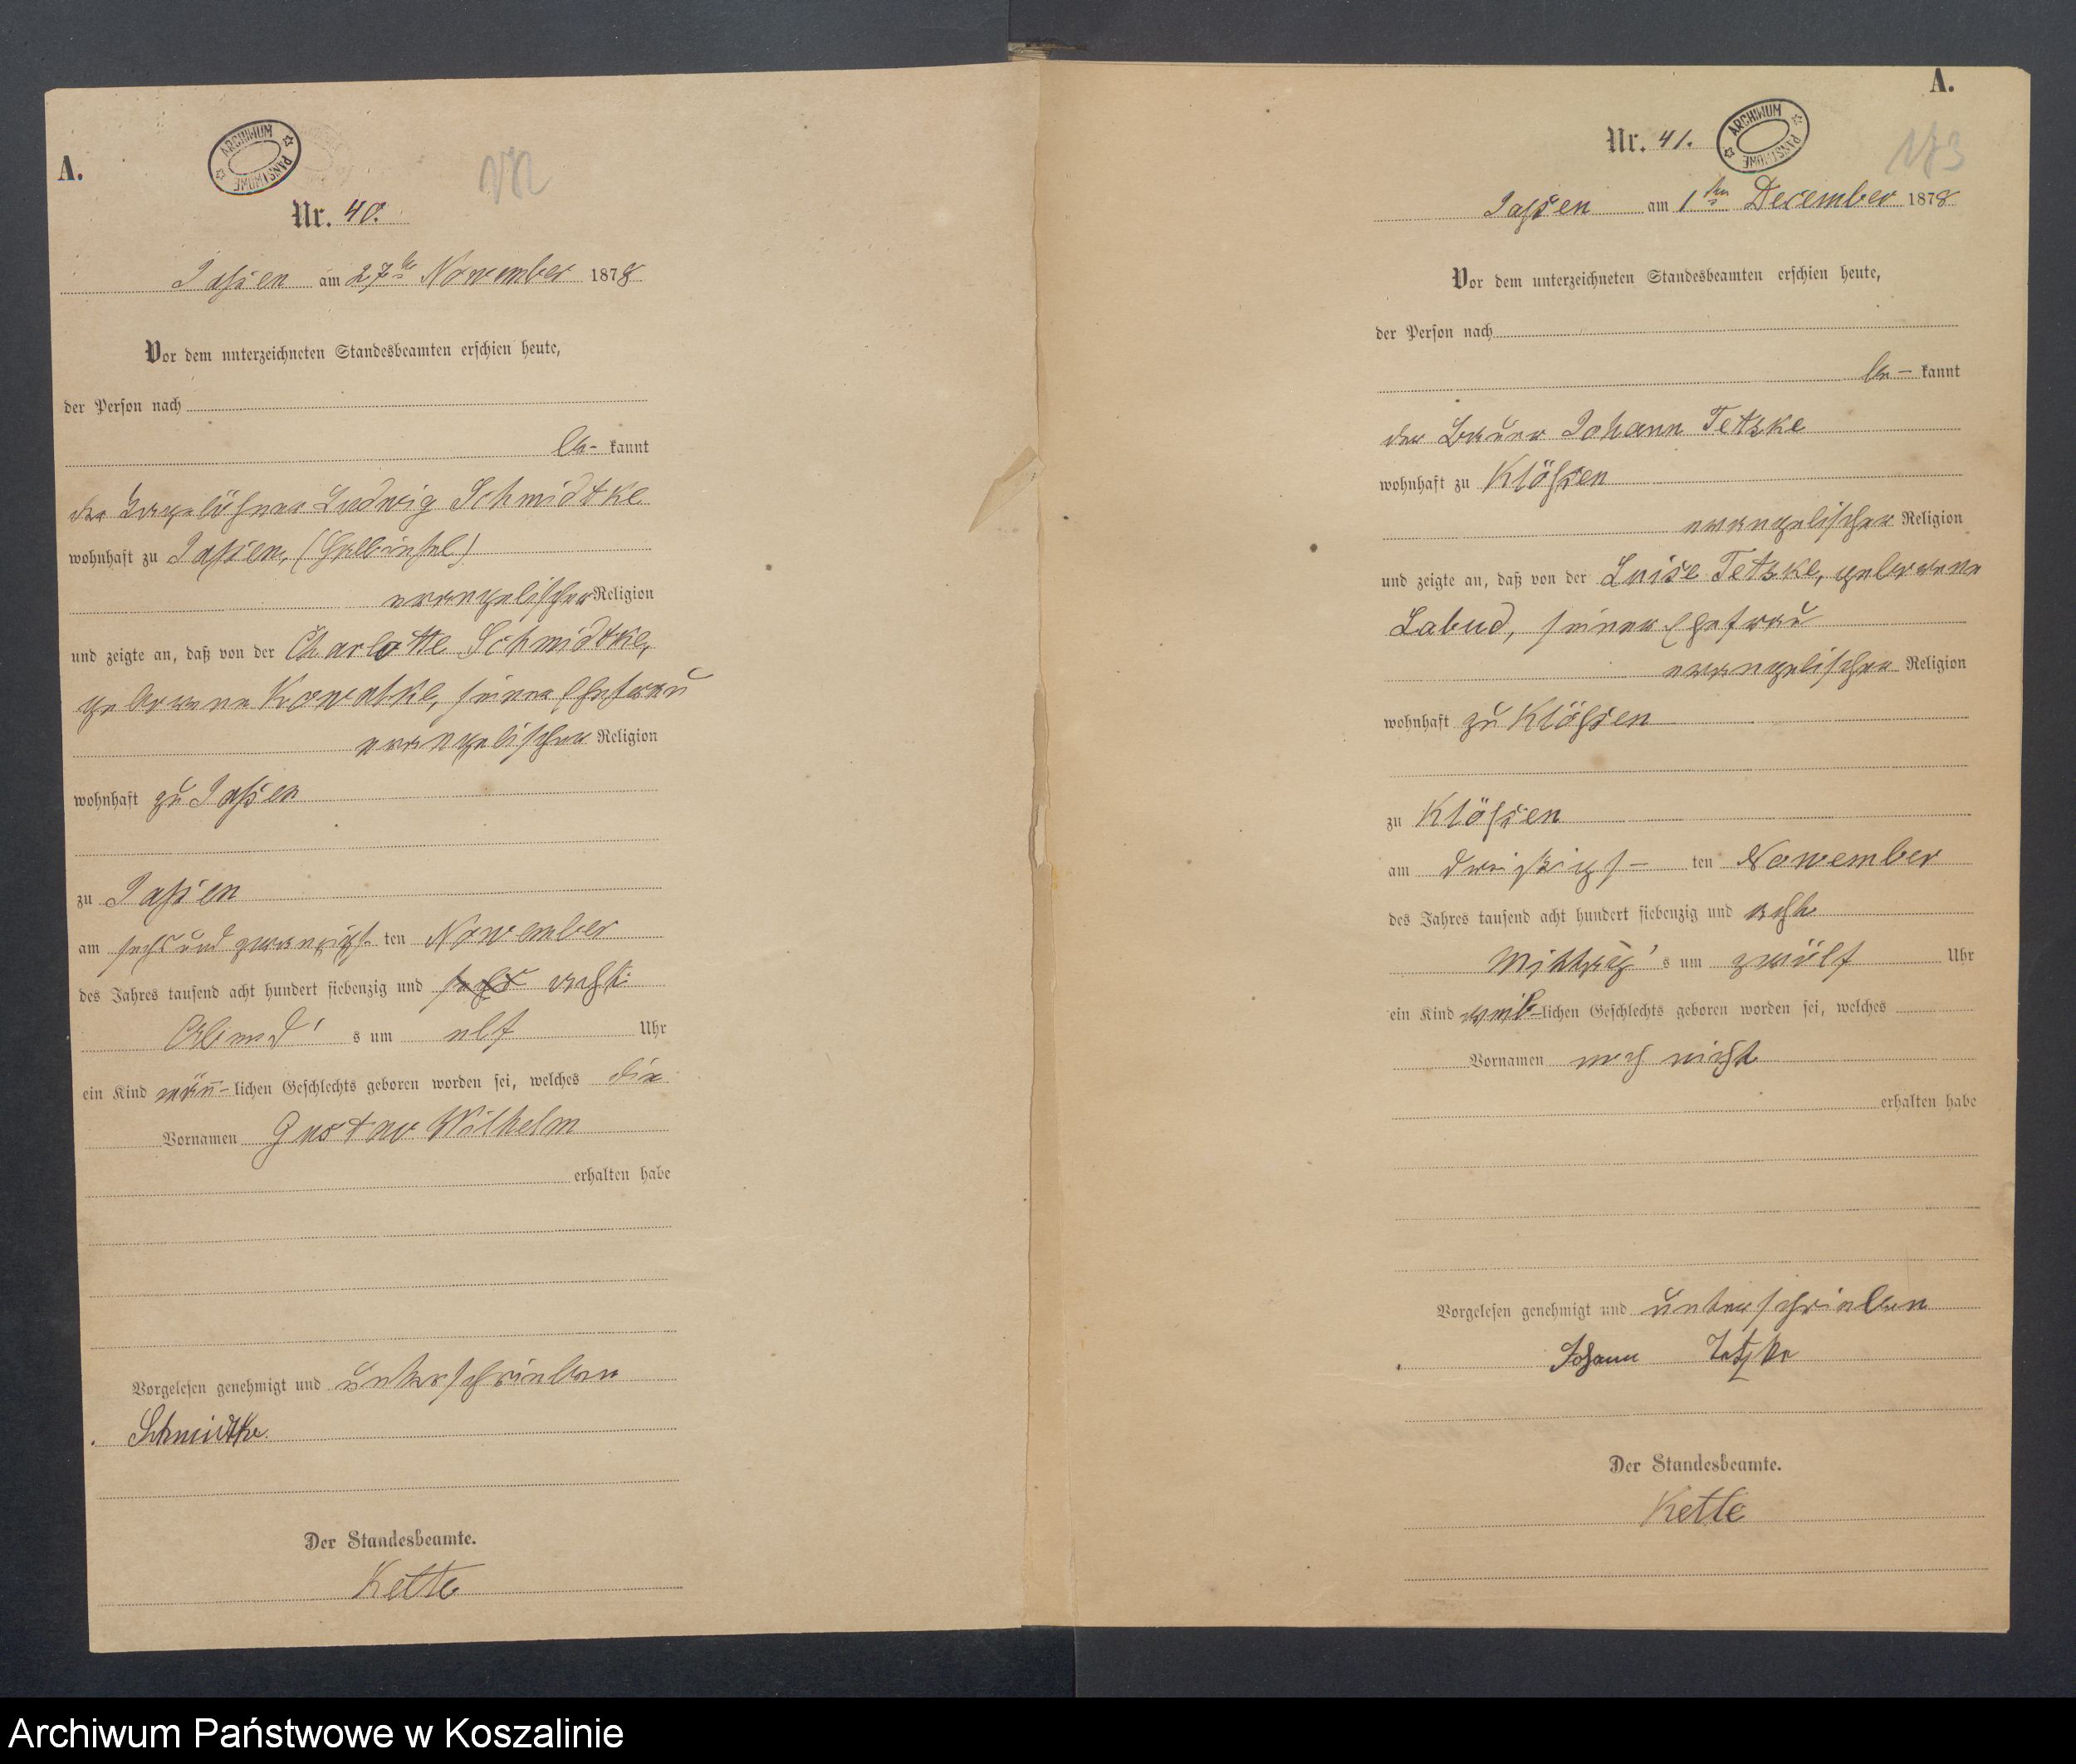 A.
ARCHIWUM PAŃSTWOWE
Nr. 40.
Jassen am 27ten November 1878
Vor dem unterzeichneten Standesbeamten erschien heute,
der Person nach
be- kannt
der Tagelöhner Ludwig Schmidtke
wohnhaft zu Jassen,
evangelischer Religion
und zeigte an, daß von der Charlotte Schmidtke,
geborene Kowatke, seiner Ehefrau
evangelischer Religion
wohnhaft zu Jassen
zu Jassen
am sechsundzwanzigst ten November
des Jahres tausend acht hundert siebenzig und acht
Abend's um elf Uhr
ein Kind männ-lichen Geschlechts geboren worden sei, welches die
Vornamen Gustav Wilhelm
erhalten habe
Vorgelesen genehmigt und unterschrieben
Schmidtke.
Der Standesbeamte.
Kette
A.
ARCHIWUM PAŃSTWOWE
Nr. 41.
173
Jassen am 1ten December 1878
Vor dem unterzeichneten Standesbeamten erschien heute,
der Person nach
be- kannt
der Bauer Johann Tetzke
wohnhaft zu Klössen
evangelischer Religion
und zeigte an, daß von der Luise Tetzke, geborene
Labud, seiner Ehefrau
evangelischer Religion
wohnhaft zu Klössen
zu Klössen
am dreißigst- ten November
des Jahres tausend acht hundert siebenzig und acht
Mittag's um zwölf Uhr
ein Kind weib-lichen Geschlechts geboren worden sei, welches
Vornamen noch nicht
erhalten habe
Vorgelesen genehmigt und unterschrieben
Johann Tetzke
Der Standesbeamte.
Kette
Archiwum Państwowe w Koszalinie